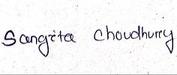 Sangita Choudhurry